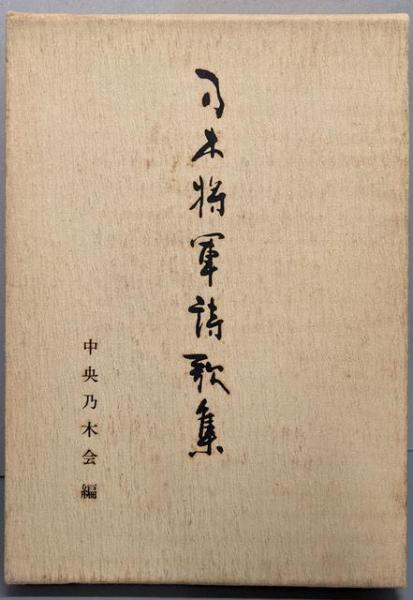 乃木将軍詩歌集
中央乃木会 編